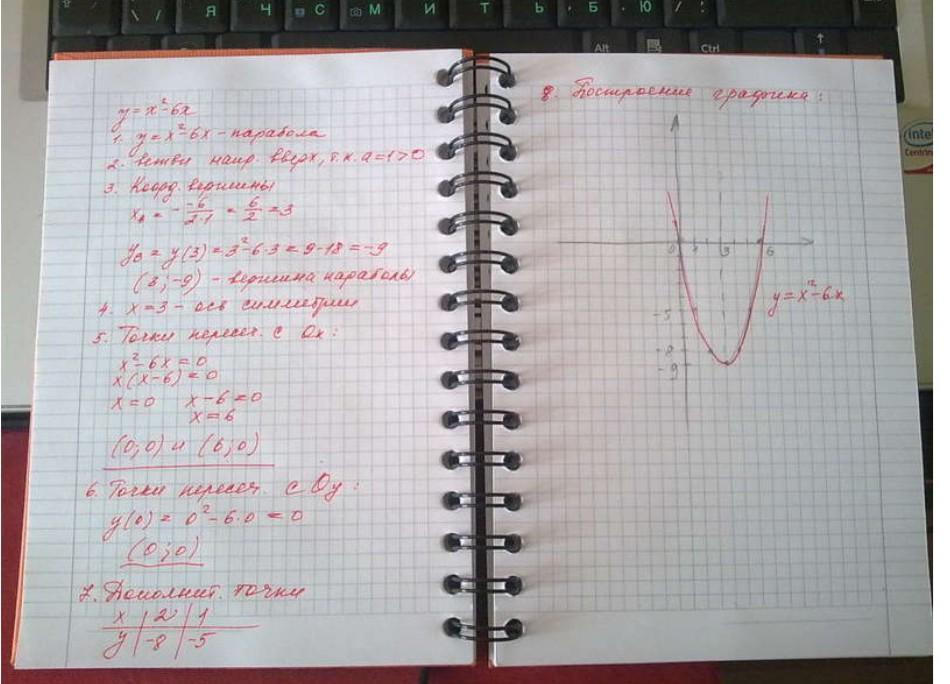 Я Ч С М И Т Ь Б Ю
Alt Ctrl
y = x² - 6x
1. y = x² - 6x - парабола
2. ветви напр. вверх, т.к. a = 1 > 0
3. Коорд. вершины
xв = - -6/2·1 = 6/2 = 3
yв = y(3) = 3² - 6·3 = 9 - 18 = -9
(3; -9) - вершина параболы
4. x = 3 - ось симметрии
5. Точки пересеч. с Ox:
x² - 6x = 0
x(x - 6) = 0
x = 0 x - 6 = 0
x = 6
(0; 0) и (6; 0)
6. Точки пересеч. с Oy:
y(0) = 0² - 6·0 = 0
(0; 0)
7. Дополнит. точки
x | 2 | 1
y | -8 | -5
8. Построение графика:
0 1 3 6
y = x² - 6x
-5
-8
-9
intel
Centrino